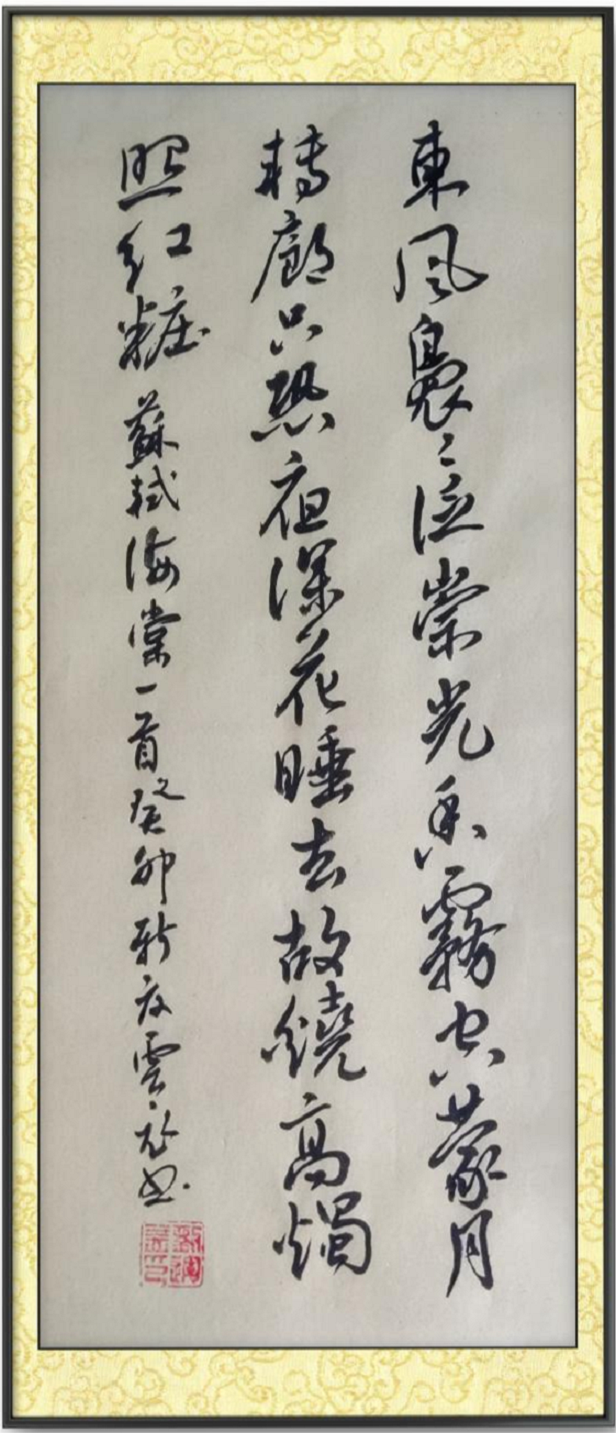 東風裊々泛崇光香霧空蒙月
轉廊只恐夜深花睡去故繞高燭
照紅粧 蘇軾海棠一首癸卯雲書